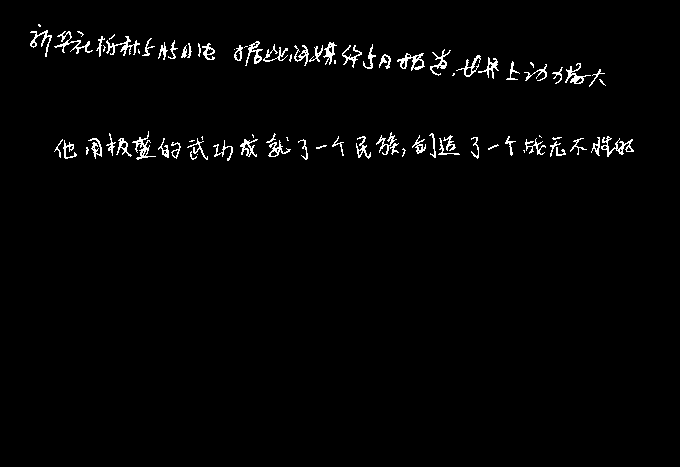 新华社柏林5月5日电 据此间媒体5日报道,世界上动力最大
他用极盛的武功成就了一个民族,创造了一个战无不胜的